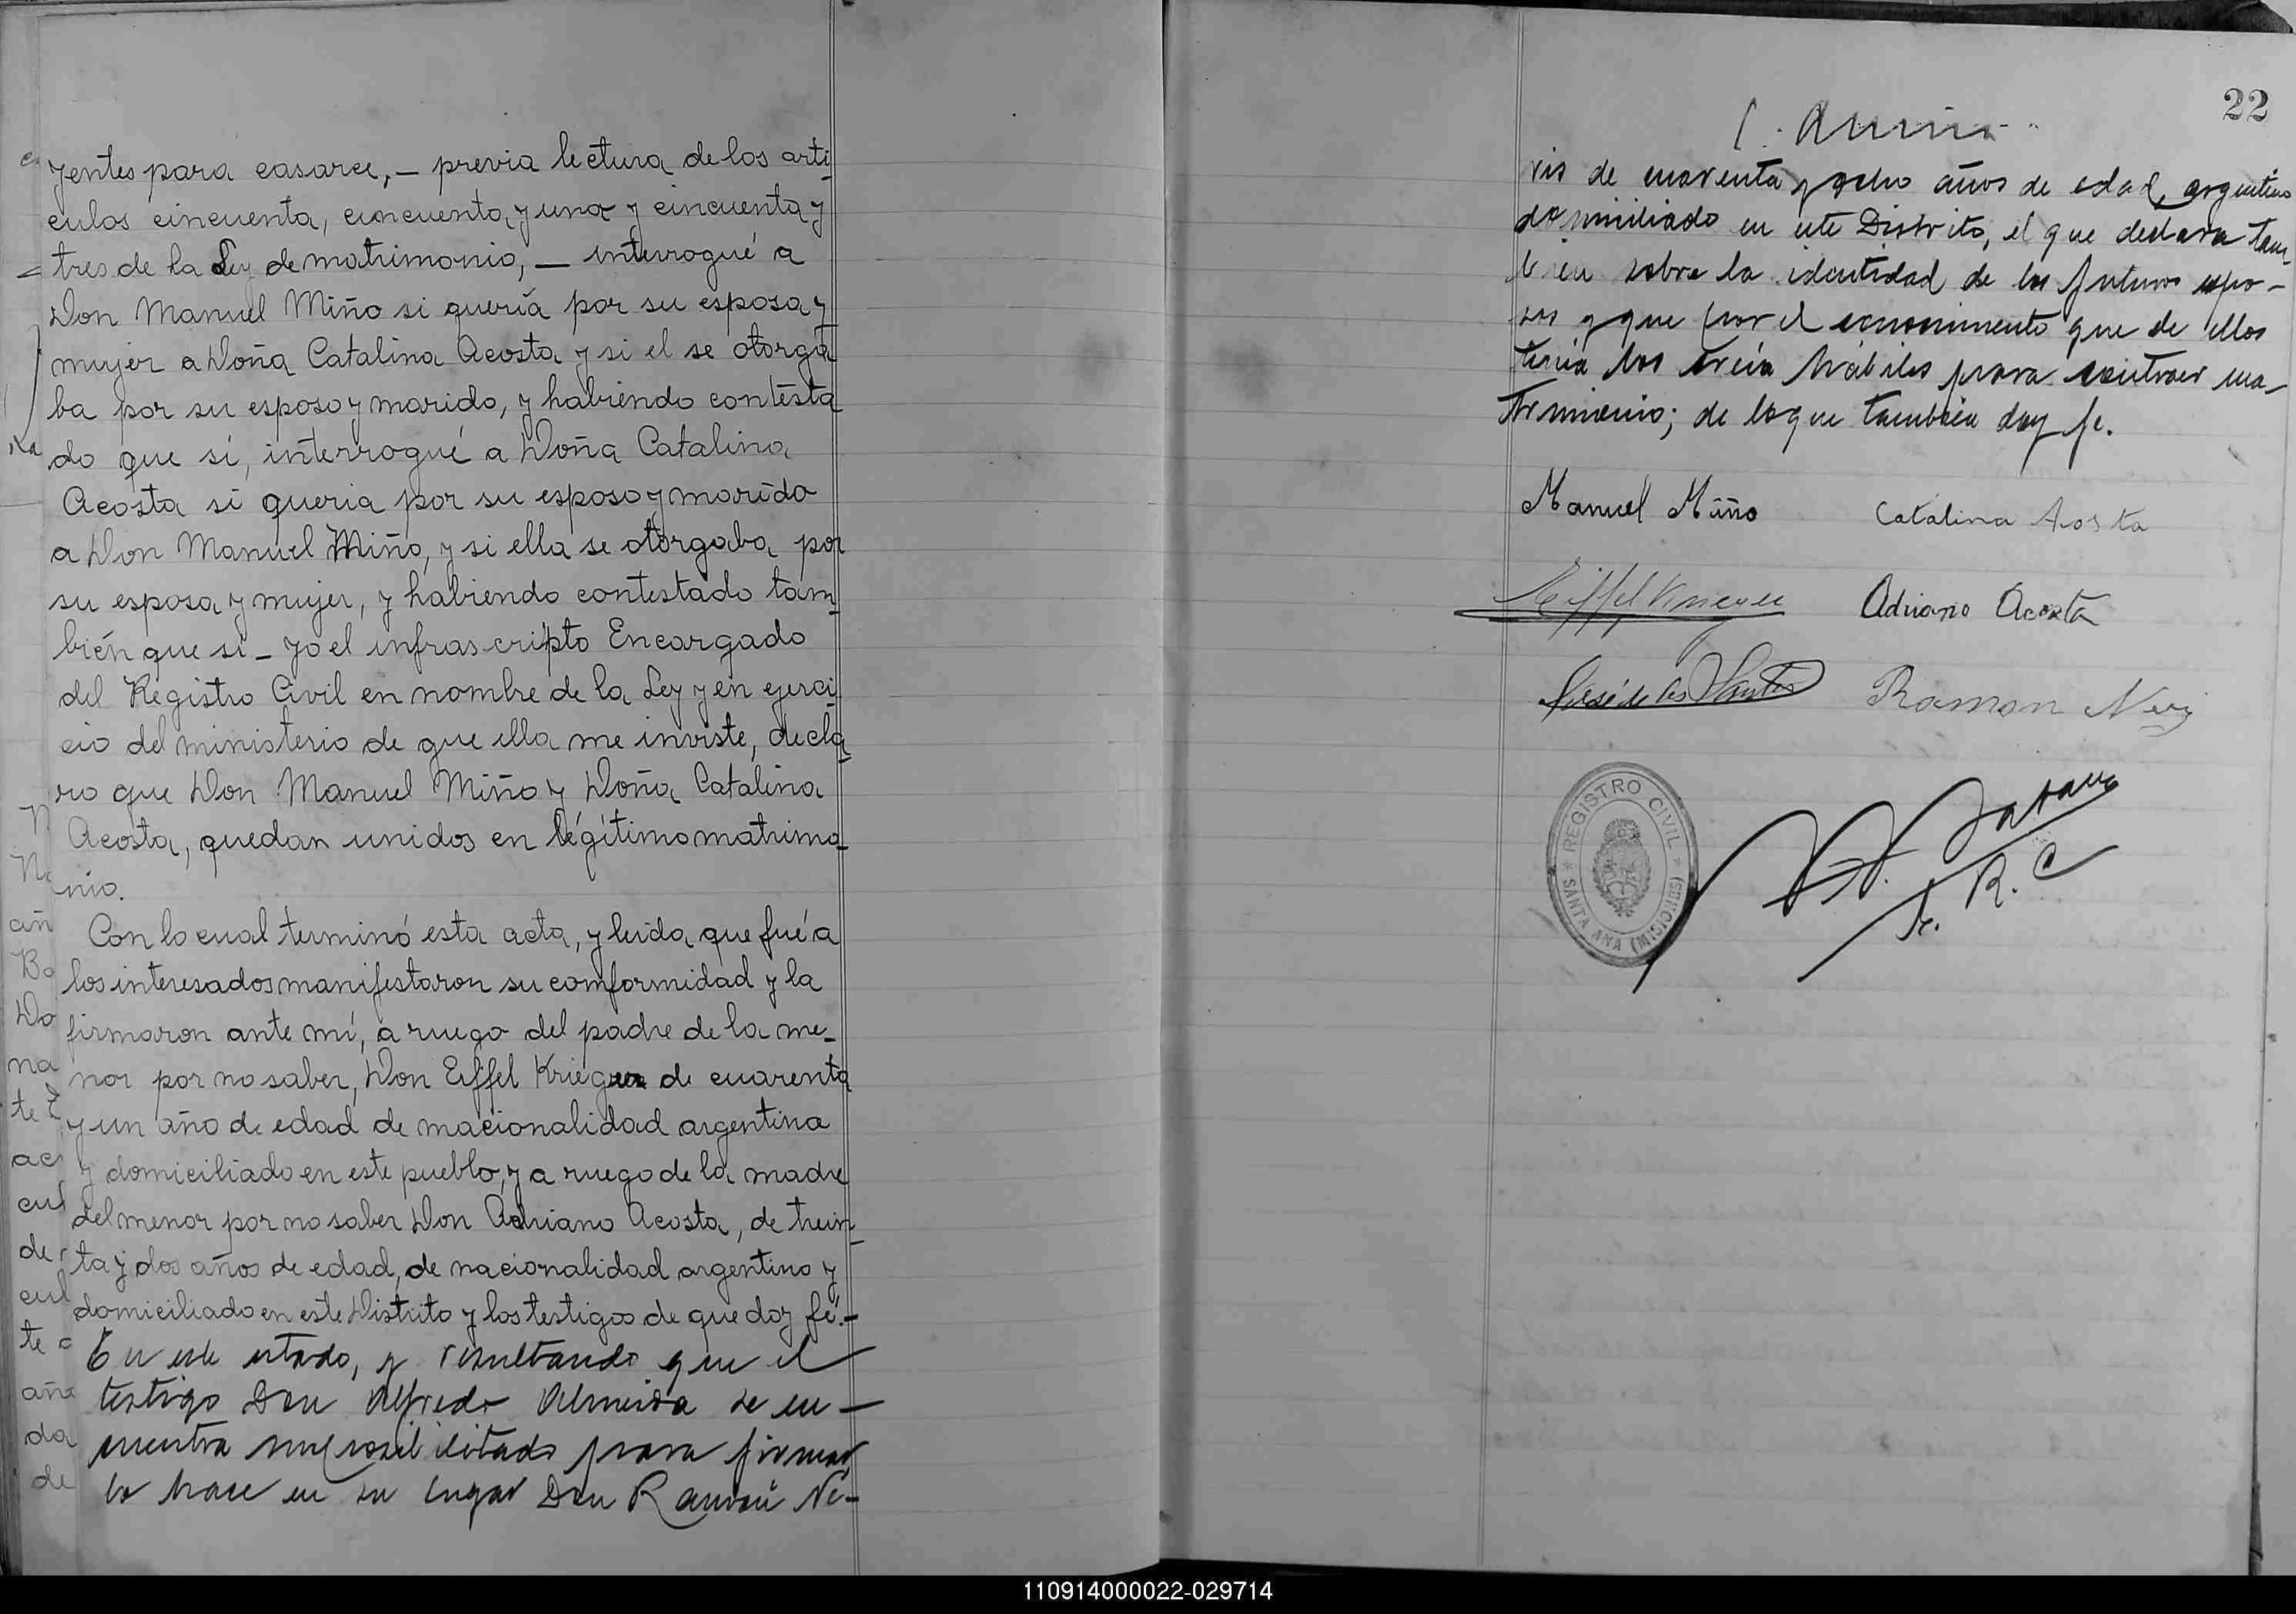 yentes para casarce, — previa lectura de los artí-
culos cincuenta, cincuenta y una y cincuenta y
tres de la Ley de matrimonio, — interrogué a
Don Manuel Miño si quería por su esposa y
mujer a Doña Catalina Acosta y si el se otorga
ba por su esposo y marido, y habiendo contesta
do que sí, interrogué a Doña Catalina
Acosta si queria por su esposo y marido
a Don Manuel Miño, y si ella se otorgaba por
su esposa y mujer, y habiendo contestado tam-
bién que si - yo el infrascripto Encargado
del Registro Civil en nombre de la Ley y en ejerci-
cio del ministerio de que ella me inviste, decla-
ro que Don Manuel Miño y Doña Catalina
Acosta, quedan unidos en légítimo matrimo-
nio.
Con lo cual terminó esta acta, y leida que fué a
los interesados manifestaron su comformidad y la
firmaron ante mí, a ruego del padre de la me-
nor por no saber, Don Eiffel Krieguer de cuarenta
y un año de edad de nacionalidad argentina
y domiciliado en este pueblo, y a ruego de la madre
del menor por no saber Don Adriano Acosta, de trein-
ta y dos años de edad, de nacionalidad argentino y
domiciliado en este Distrito y los testigos de que doy fé.-
En este estado, y resultando que el
testigo Don Alfredo Almeida se en-
cuentra imposibilitado para firmar
lo hace en su lugar Don Ramón Ne-
22
ris de cuarenta y ocho años de edad, argentino
domiciliado en este Distrito, el que declara tam-
bien sobre la identidad de los futuros espo-
sos y que por el conocimiento que de ellos
tenia los creia hábiles para contraer ma-
trimonio; de lo que también doy fe.
Manuel Miño Catalina Acosta
Eiffel Krieguer Adriano Acosta
José de los Santos Ramon Neris
REGISTRO CIVIL
SANTA ANA (MISIONES)
R. C
110914000022-029714